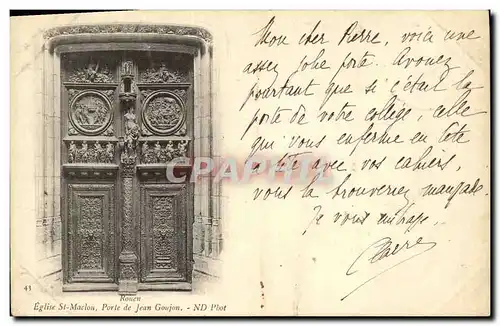 Mon cher Pierre, voici une
assez jolie porte. Avouez
pourtant que si c'était la
porte de votre collège, celle
qui vous enferme en tête
à tête avec vos cahiers,
vous la trouveriez maussade.
Je vous embrasse.
CARTE
41
Rouen
Église St-Maclou, Porte de Jean Goujon. - ND Phot